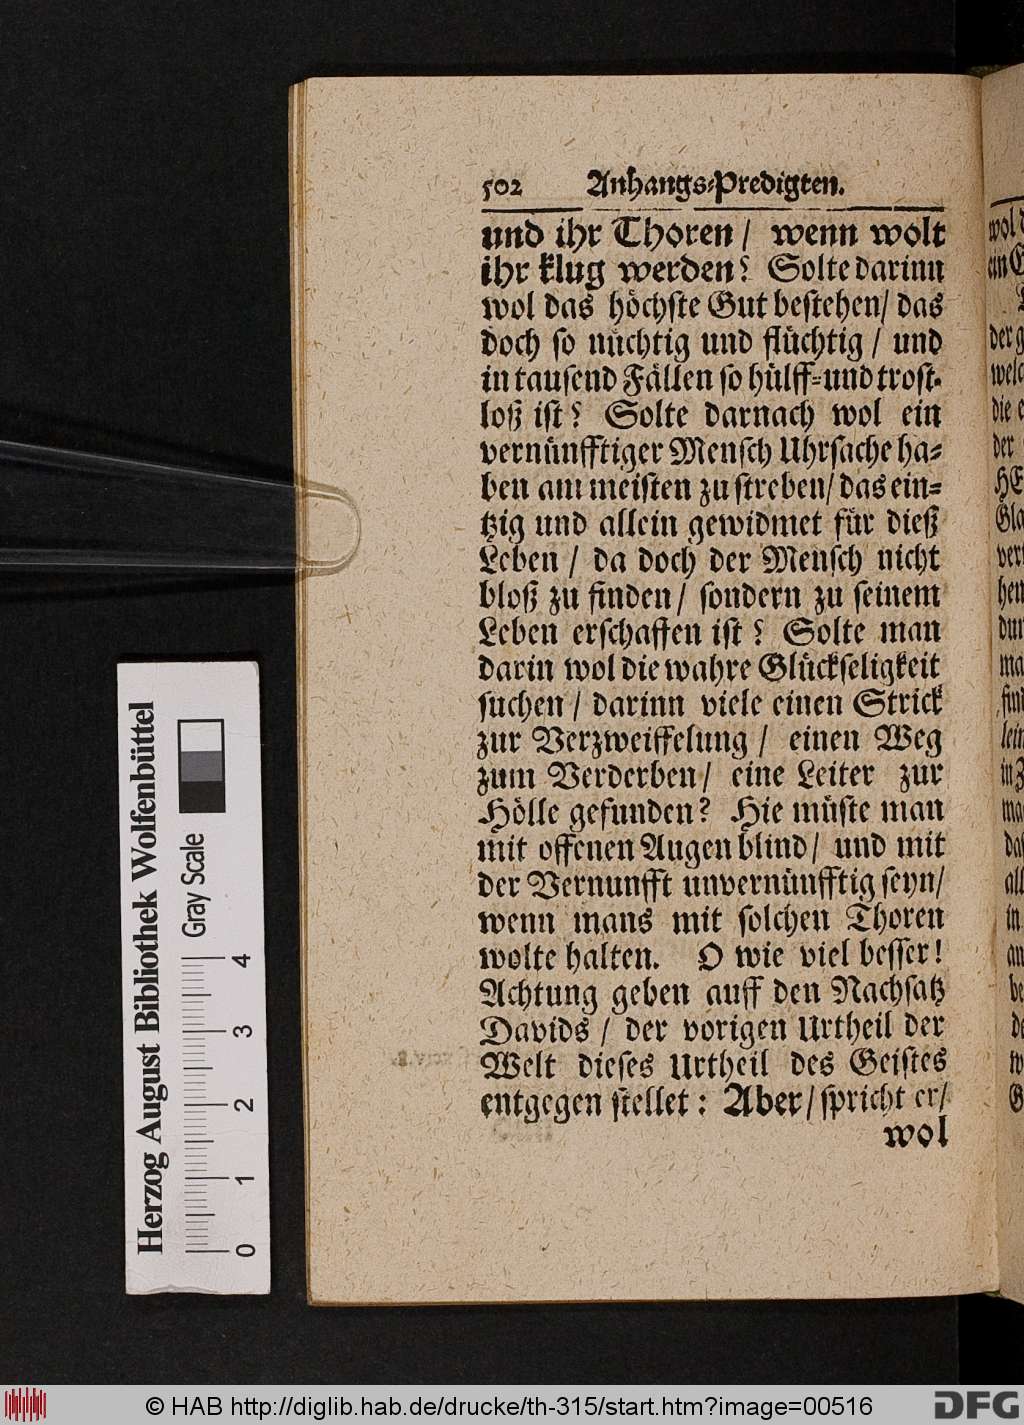 502 Anhangs-Predigten.
und ihr Thoren / wenn wolt
ihr klug werden? Solte darinn
wol das höchste Gut bestehen/ das
doch so nüchtig und flüchtig / und
in tausend Fällen so hülff-und trost-
loß ist? Solte darnach wol ein
vernünfftiger Mensch Uhrsache ha-
ben am meisten zu streben/ das ein-
tzig und allein gewidmet für dieß
Leben / da doch der Mensch nicht
bloß zu finden/ sondern zu seinem
Leben erschaffen ist? Solte man
darin wol die wahre Glückseligkeit
suchen / darinn viele einen Strick
zur Verzweiffelung / einen Weg
zum Verderben/ eine Leiter zur
Hölle gefunden? Hie müste man
mit offenen Augen blind/ und mit
der Vernunfft unvernünfftig seyn/
wenn mans mit solchen Thoren
wolte halten. O wie viel besser!
Achtung geben auff den Nachsatz
Davids / der vorigen Urtheil der
Welt dieses Urtheil des Geistes
entgegen stellet: Aber/ spricht er/
wol
Herzog August Bibliothek Wolfenbüttel
Gray Scale
0 1 2 3 4
© HAB http://diglib.hab.de/drucke/th-315/start.htm?image=00516
DFG